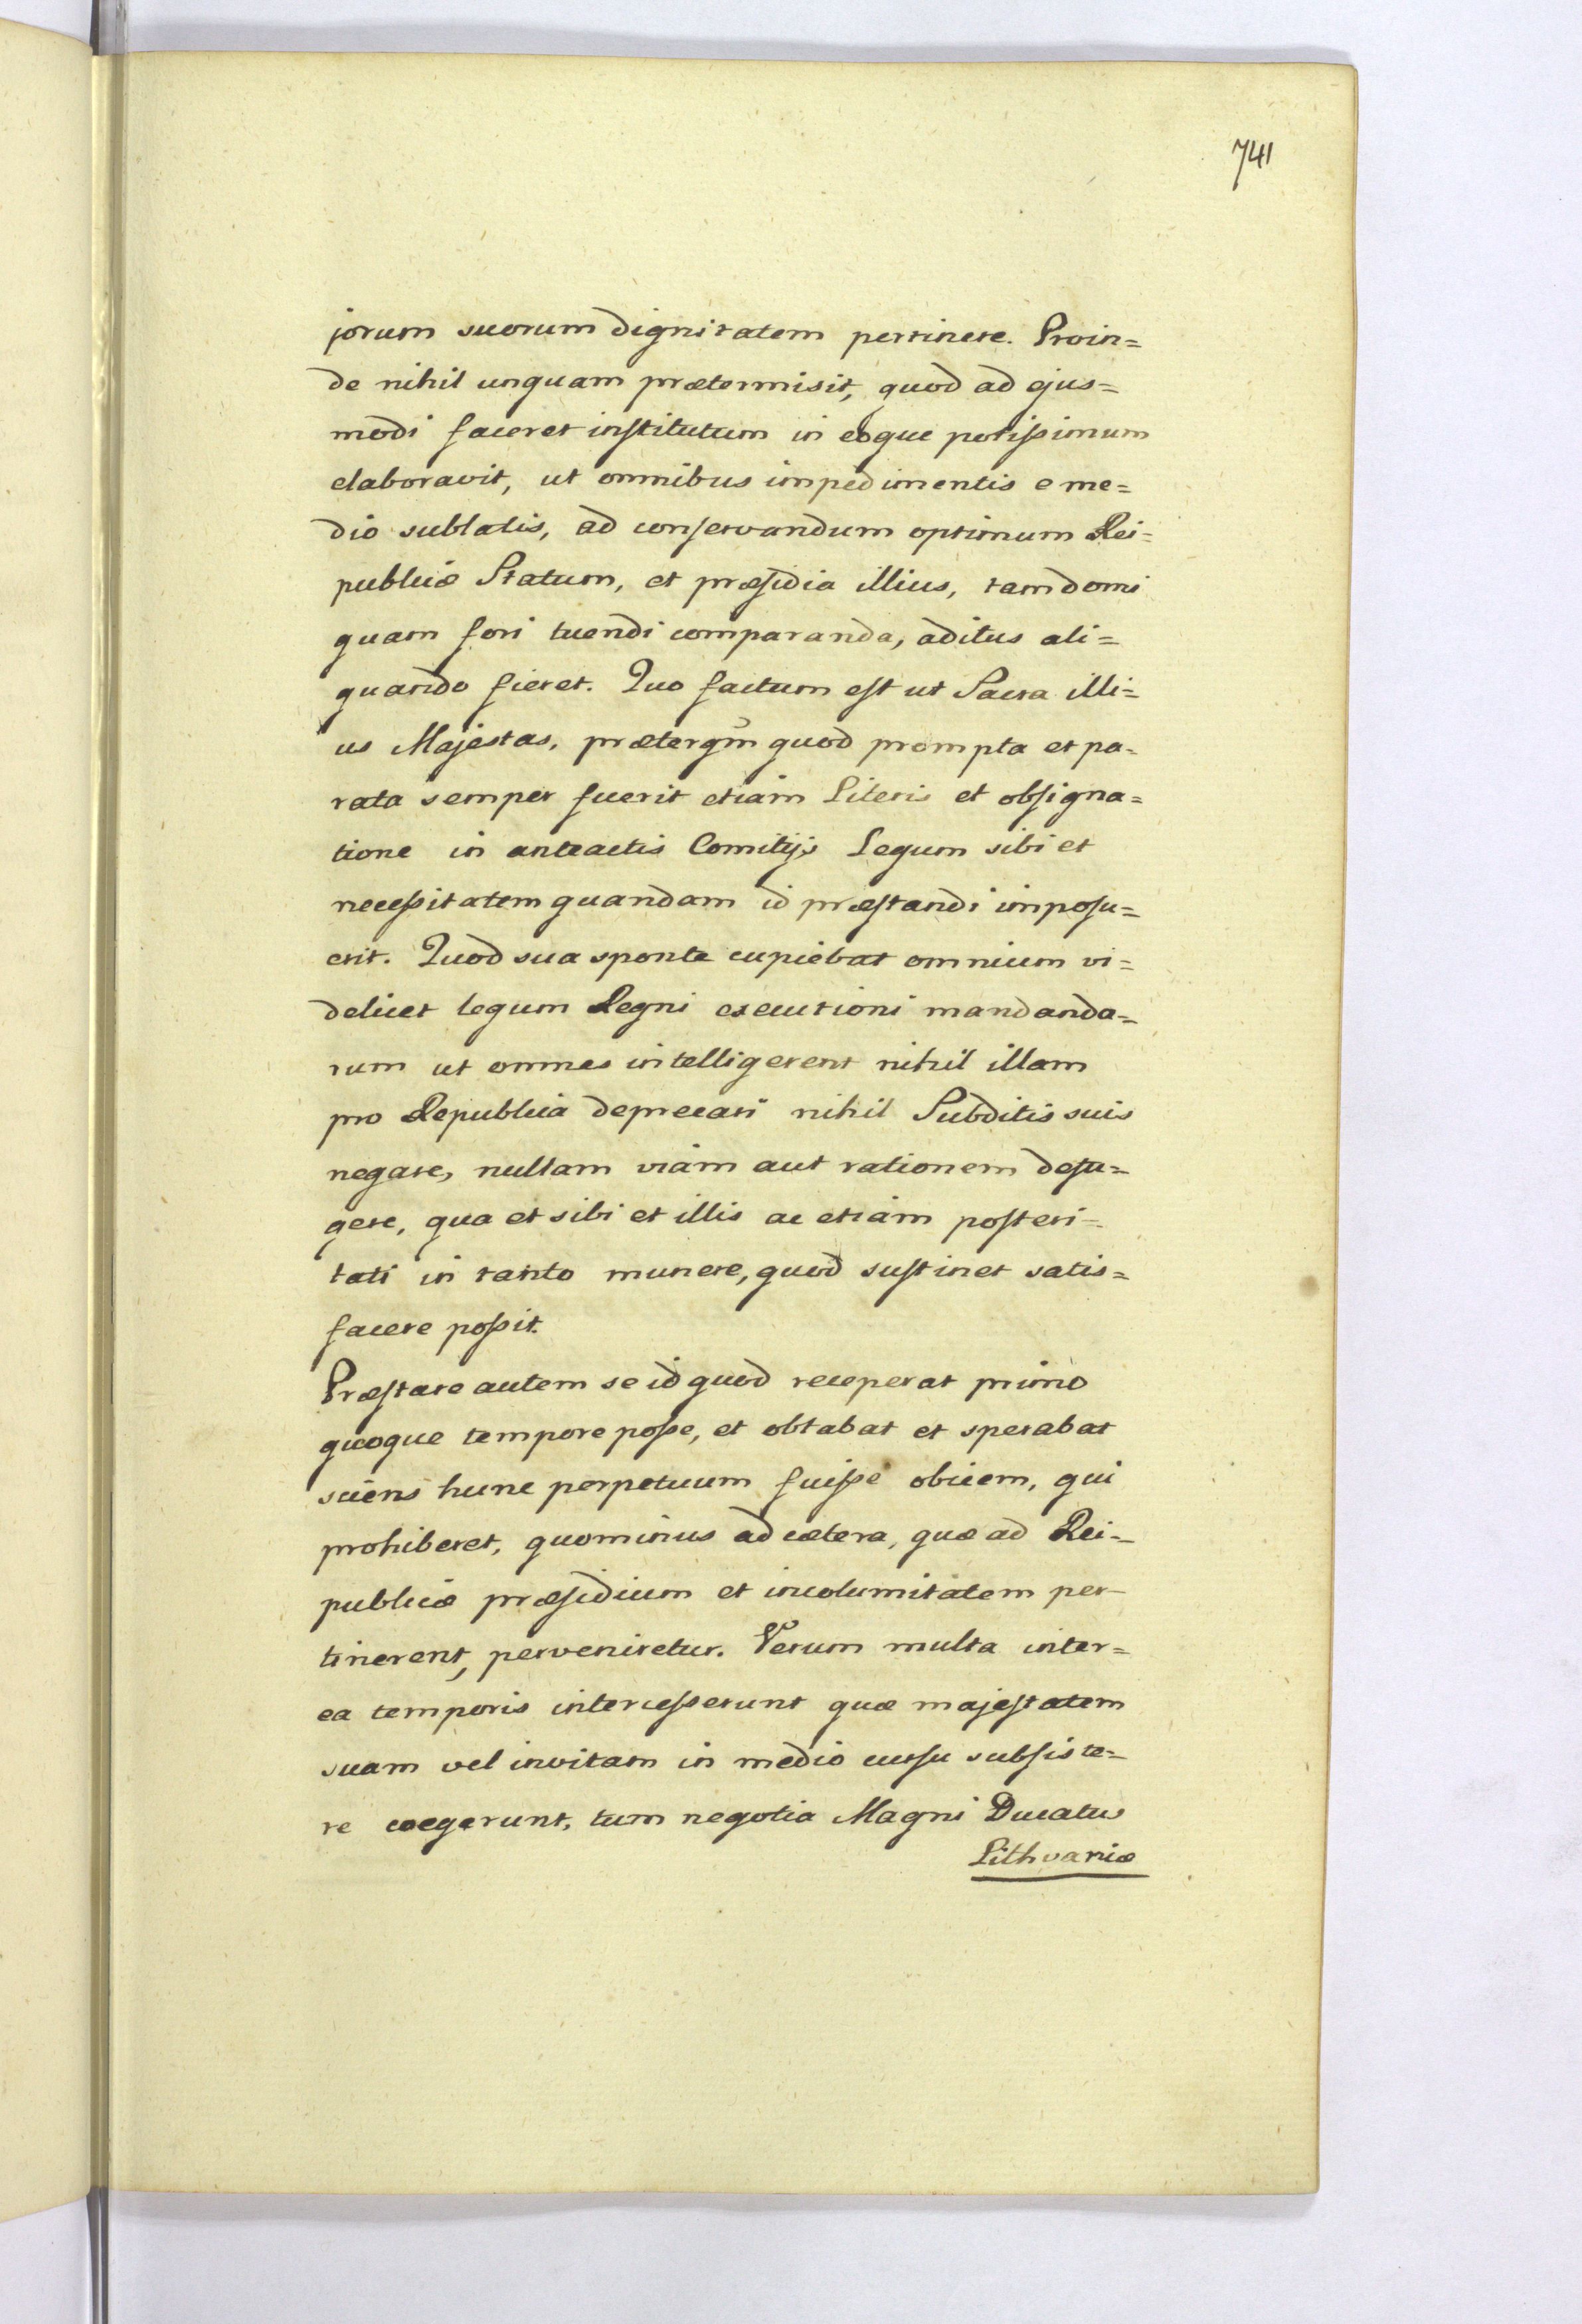 741
jorum suorum dignitatem pertinere. Proin=
de nihil unquam prætermisit, quod ad ejus=
modi faceret institutum in eoque potissimum
elaboravit, ut omnibus impedimentis e me=
dio sublatis, ad conservandum optimum Rei=
publicæ Statum, et præsidia illius, tam domi
quam fori tuendi comparanda, aditus ali=
quando fieret. Quo factum est ut Sacra illi=
us Majestas, præterqm̄ quod prompta et pa=
rata semper fuerit etiam Literis et obsigna=
tione in anteactis Comitijs Legum sibi et
necessitatem quandam id præstandi imposu=
erit. Quod sua sponte cupiebat omnium vi=
delicet legum Regni executioni mandanda=
rum ut omnes intelligerent nihil illam
pro Republica deprecari nihil Subditis suis
negare, nullam viam aut rationem defu=
gere, qua et sibi et illis ac etiam posteri=
tati in tanto munere, quod sustinet satis=
facere possit.
Præstare autem se id quod receperat primo
quoque tempore posse, et obtabat et sperabat
sciens hunc perpetuum fuisse obicem, qui
prohiberet, quominus ad cætera, quæ ad Rei=
publicæ præsidium et incolumitatem per=
tinerent, perveniretur. Verum multa inter=
ea temporis intercesserunt quæ majestatem
suam vel invitam in medio cursu subsiste=
re coegerunt, tum negotia Magni Ducatus
Lithvaniæ